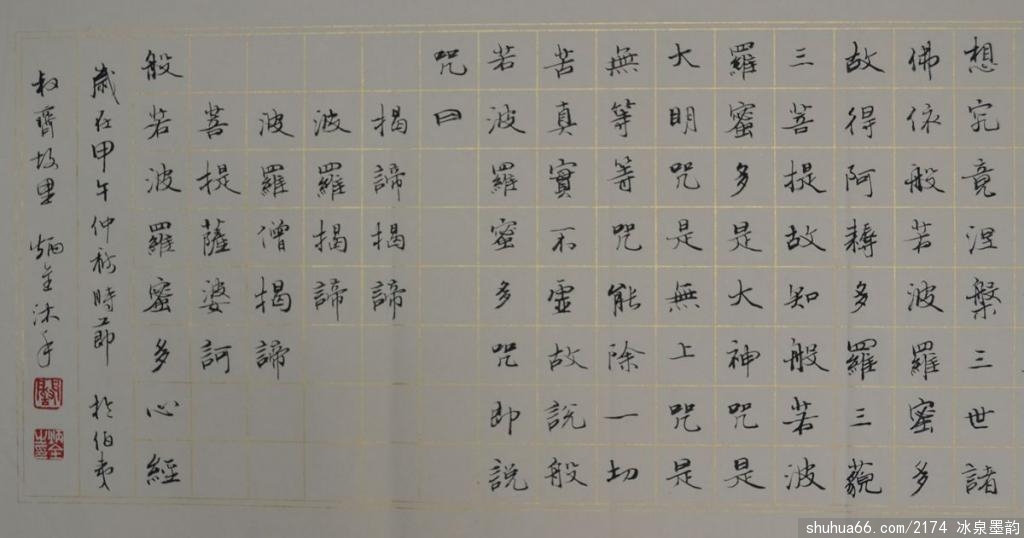 想究竟涅槃三世諸
佛依般若波羅蜜多
故得阿耨多羅三藐
三菩提故知般若波
羅蜜多是大神咒是
大明咒是無上咒是
無等等咒能除一切
苦真實不虛故說般
若波羅蜜多咒即說
咒曰
揭諦揭諦
波羅揭諦
波羅僧揭諦
菩提薩婆訶
般若波羅蜜多心經
歲在甲午仲秋時節 於伯夷
叔齊故里 炳金沐手
shuhua66.com/2174 冰泉墨韵